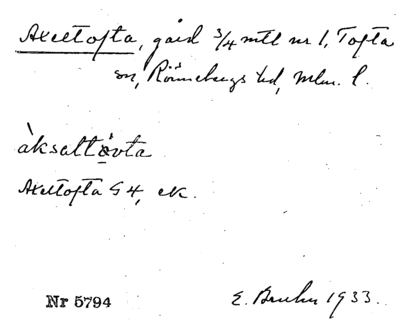 Axeltofta, gård 3/4 mtl nr 1, Tofta
sn, Rönnebergs hd, Mlm. l.
àksaltå̀vta
Axeltofta G 4, ek.
Nr 5794 E. Bruhn 1933.